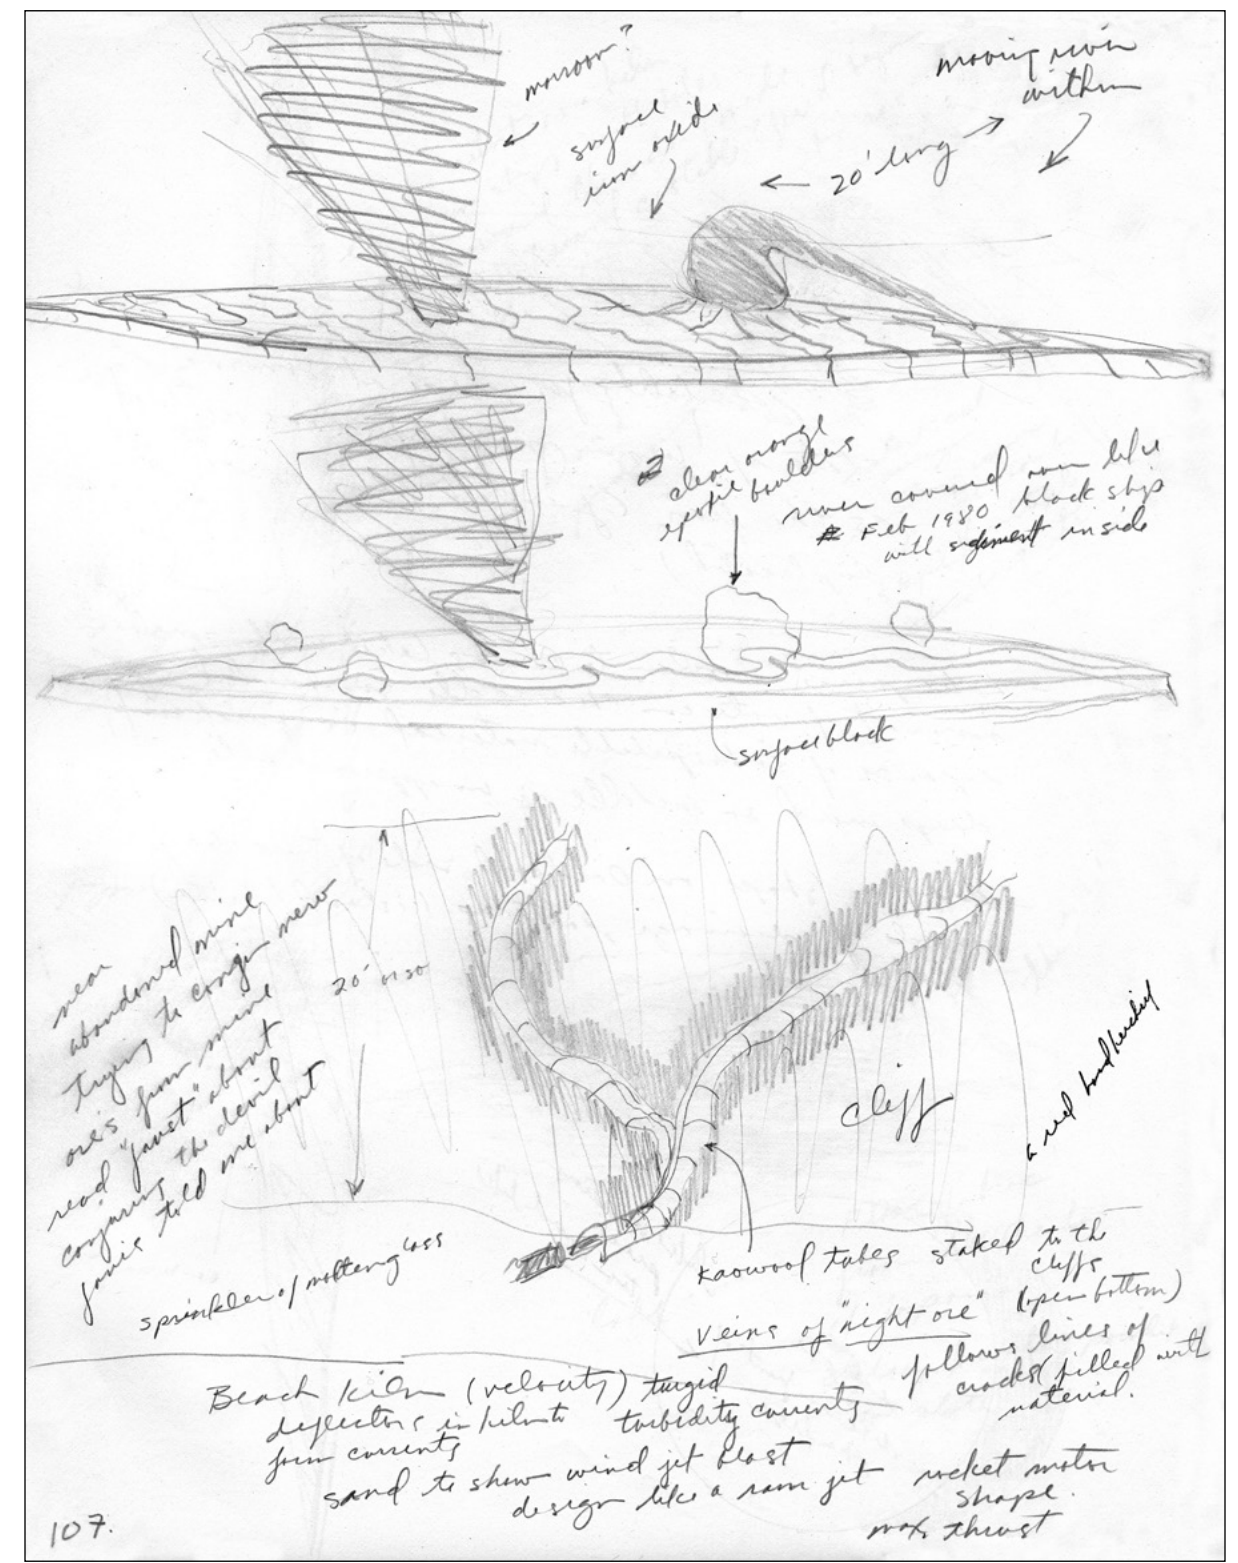 monsoon?
surface
iron oxide
20' long
moving river
within
clear orange
boulders
river covered over like
Feb 1980 black ship
with sediment inside
surface black
near
abandoned mine
trying to conjur new
ore's from mine
read "faust" about
conjuring the devil
janis told me about
20' or so
cliff
a red handkerchief
sprinkler of molten glass
Kaowool tubes staked to the
cliffs
(open bottom)
Veins of "night ore"
follows lines of
cracks filled with
material.
Beach kiln (velocity) turgid
deflectors in kiln to turbidity currents
form currents
sand to show wind jet blast
design like a ram jet rocket motor
shape.
max thrust
107.